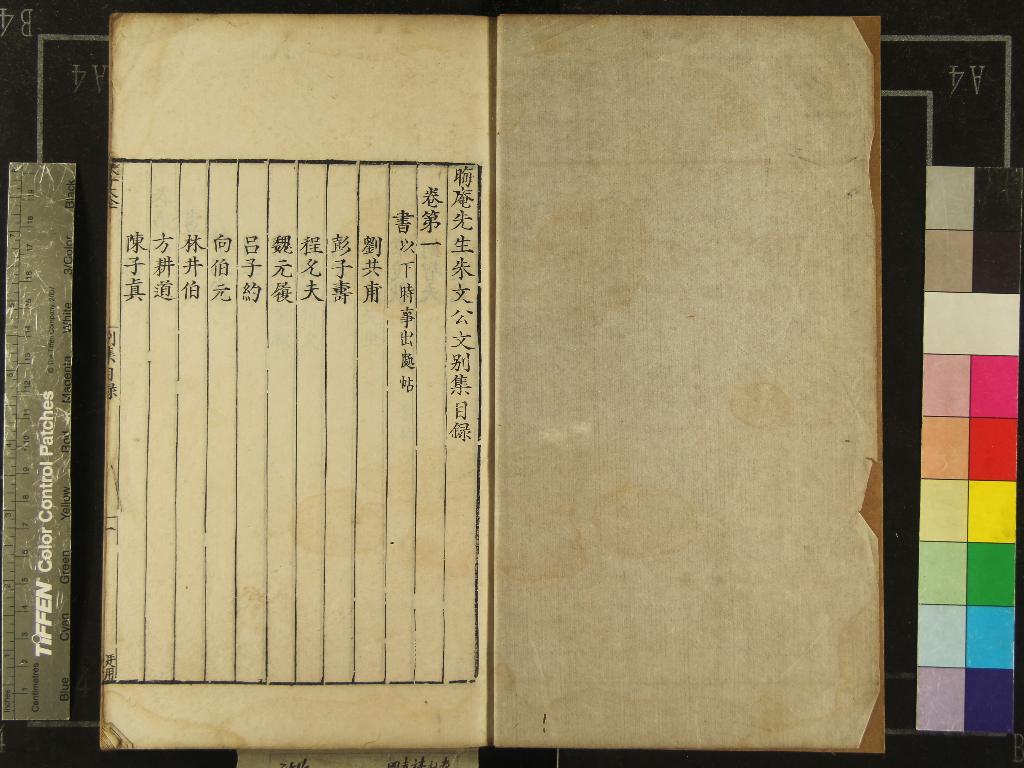 晦庵先生朱文公文別集目録
卷第一
書以下時事出處帖
劉共甫
彭子壽
程允夫
魏元履
吕子約
向伯元
林井伯
方耕道
陳子真
別集目録
TIFFEN Color Control Patches
© The Tiffen Company, 2007
Inches
Centimetres
Blue
Cyan
Green
Yellow
Red
Magenta
White
3/Color
Black
B4
A4
A4